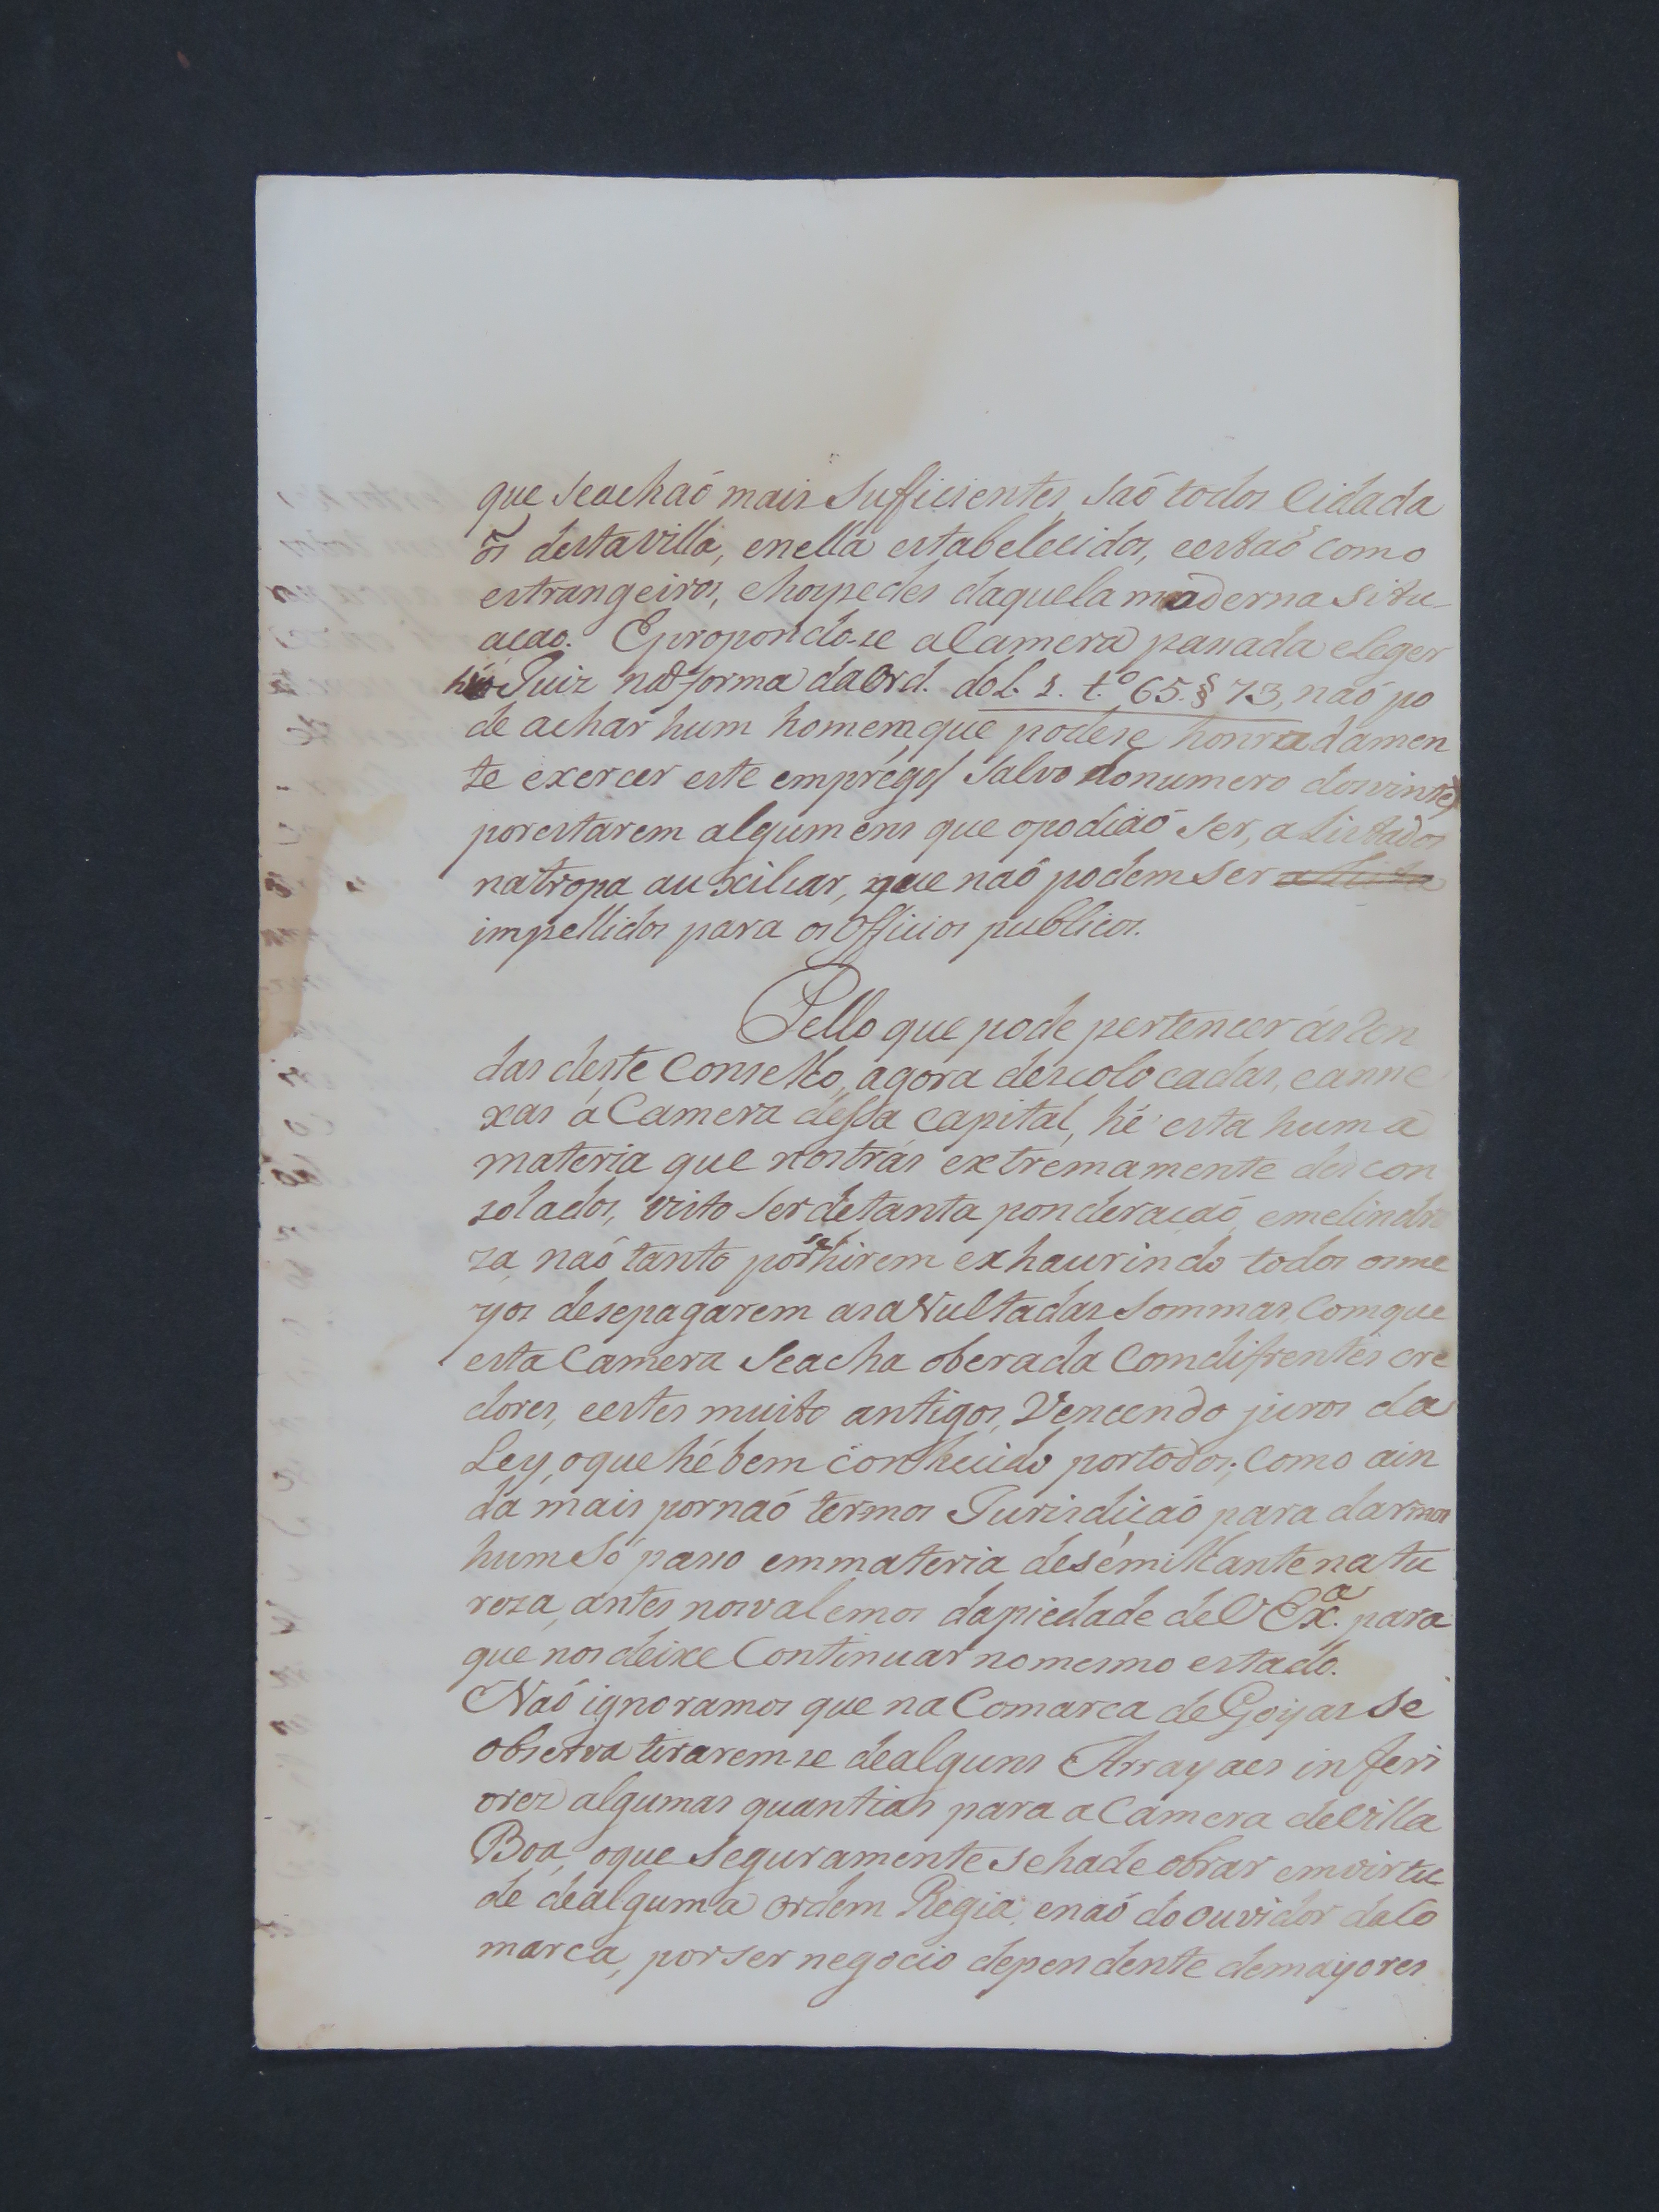 que seachaõ mais Sufficientes, saõ todos Cidada
õs destavilla, enella estabelecidos, eestaõ como
estrangeiros, ehospedes daquela moderna situ-
açaõ. Epropondo-se aCamera passada eleger
hũ Juiz na forma daOrd. do L. 1. t.º 65. § 73, naõ po
de achar hum homem que podese honradamen
te exercer este emprego/ salvo donumero dosvinte)
porestarem algum ens que opodiaõ ser, alistados
natropa auxiliar, que naõ podem ser alista
impellidos para osOfficios publicos.
Pello que pode pertencer ásRen
das deste Conselho, agora descolocadas, eanne
xas á Camera dessa Capital, hé esta huma
materia que nostrás extremamente descon
solados, visto serdetanta ponderaçaõ, emelindre
za, naõ tanto por se hirem exhaurindo todos osme
yos desepagarem asaVultadas Sommas, Comque
esta Camera Seacha oberada Comdifrentes cre
dores, eestes muito antigos, Vencendo juros da
Ley, oque hé bem conhecido portodos; Como ain
da mais pornaõ termos Jurisdiçaõ para darmos
hum Só passo emmateria desemilhante natu
reza, antes nosvalemos dapiedade deV Exª. para
que nos deixe Continuar nomesmo estado.
Naõ ignoramos que na Comarca de Goyas Se
observa tirarem-se dealguns Arrayaes inferi
orez algumas quantias para aCamera deVilla
Boa, oque Seguramente sehade obrar emvirtu
de dealguma Ordem Regia, enaõ do Ouvidor daCo
marca, porser negocio dependente demayores